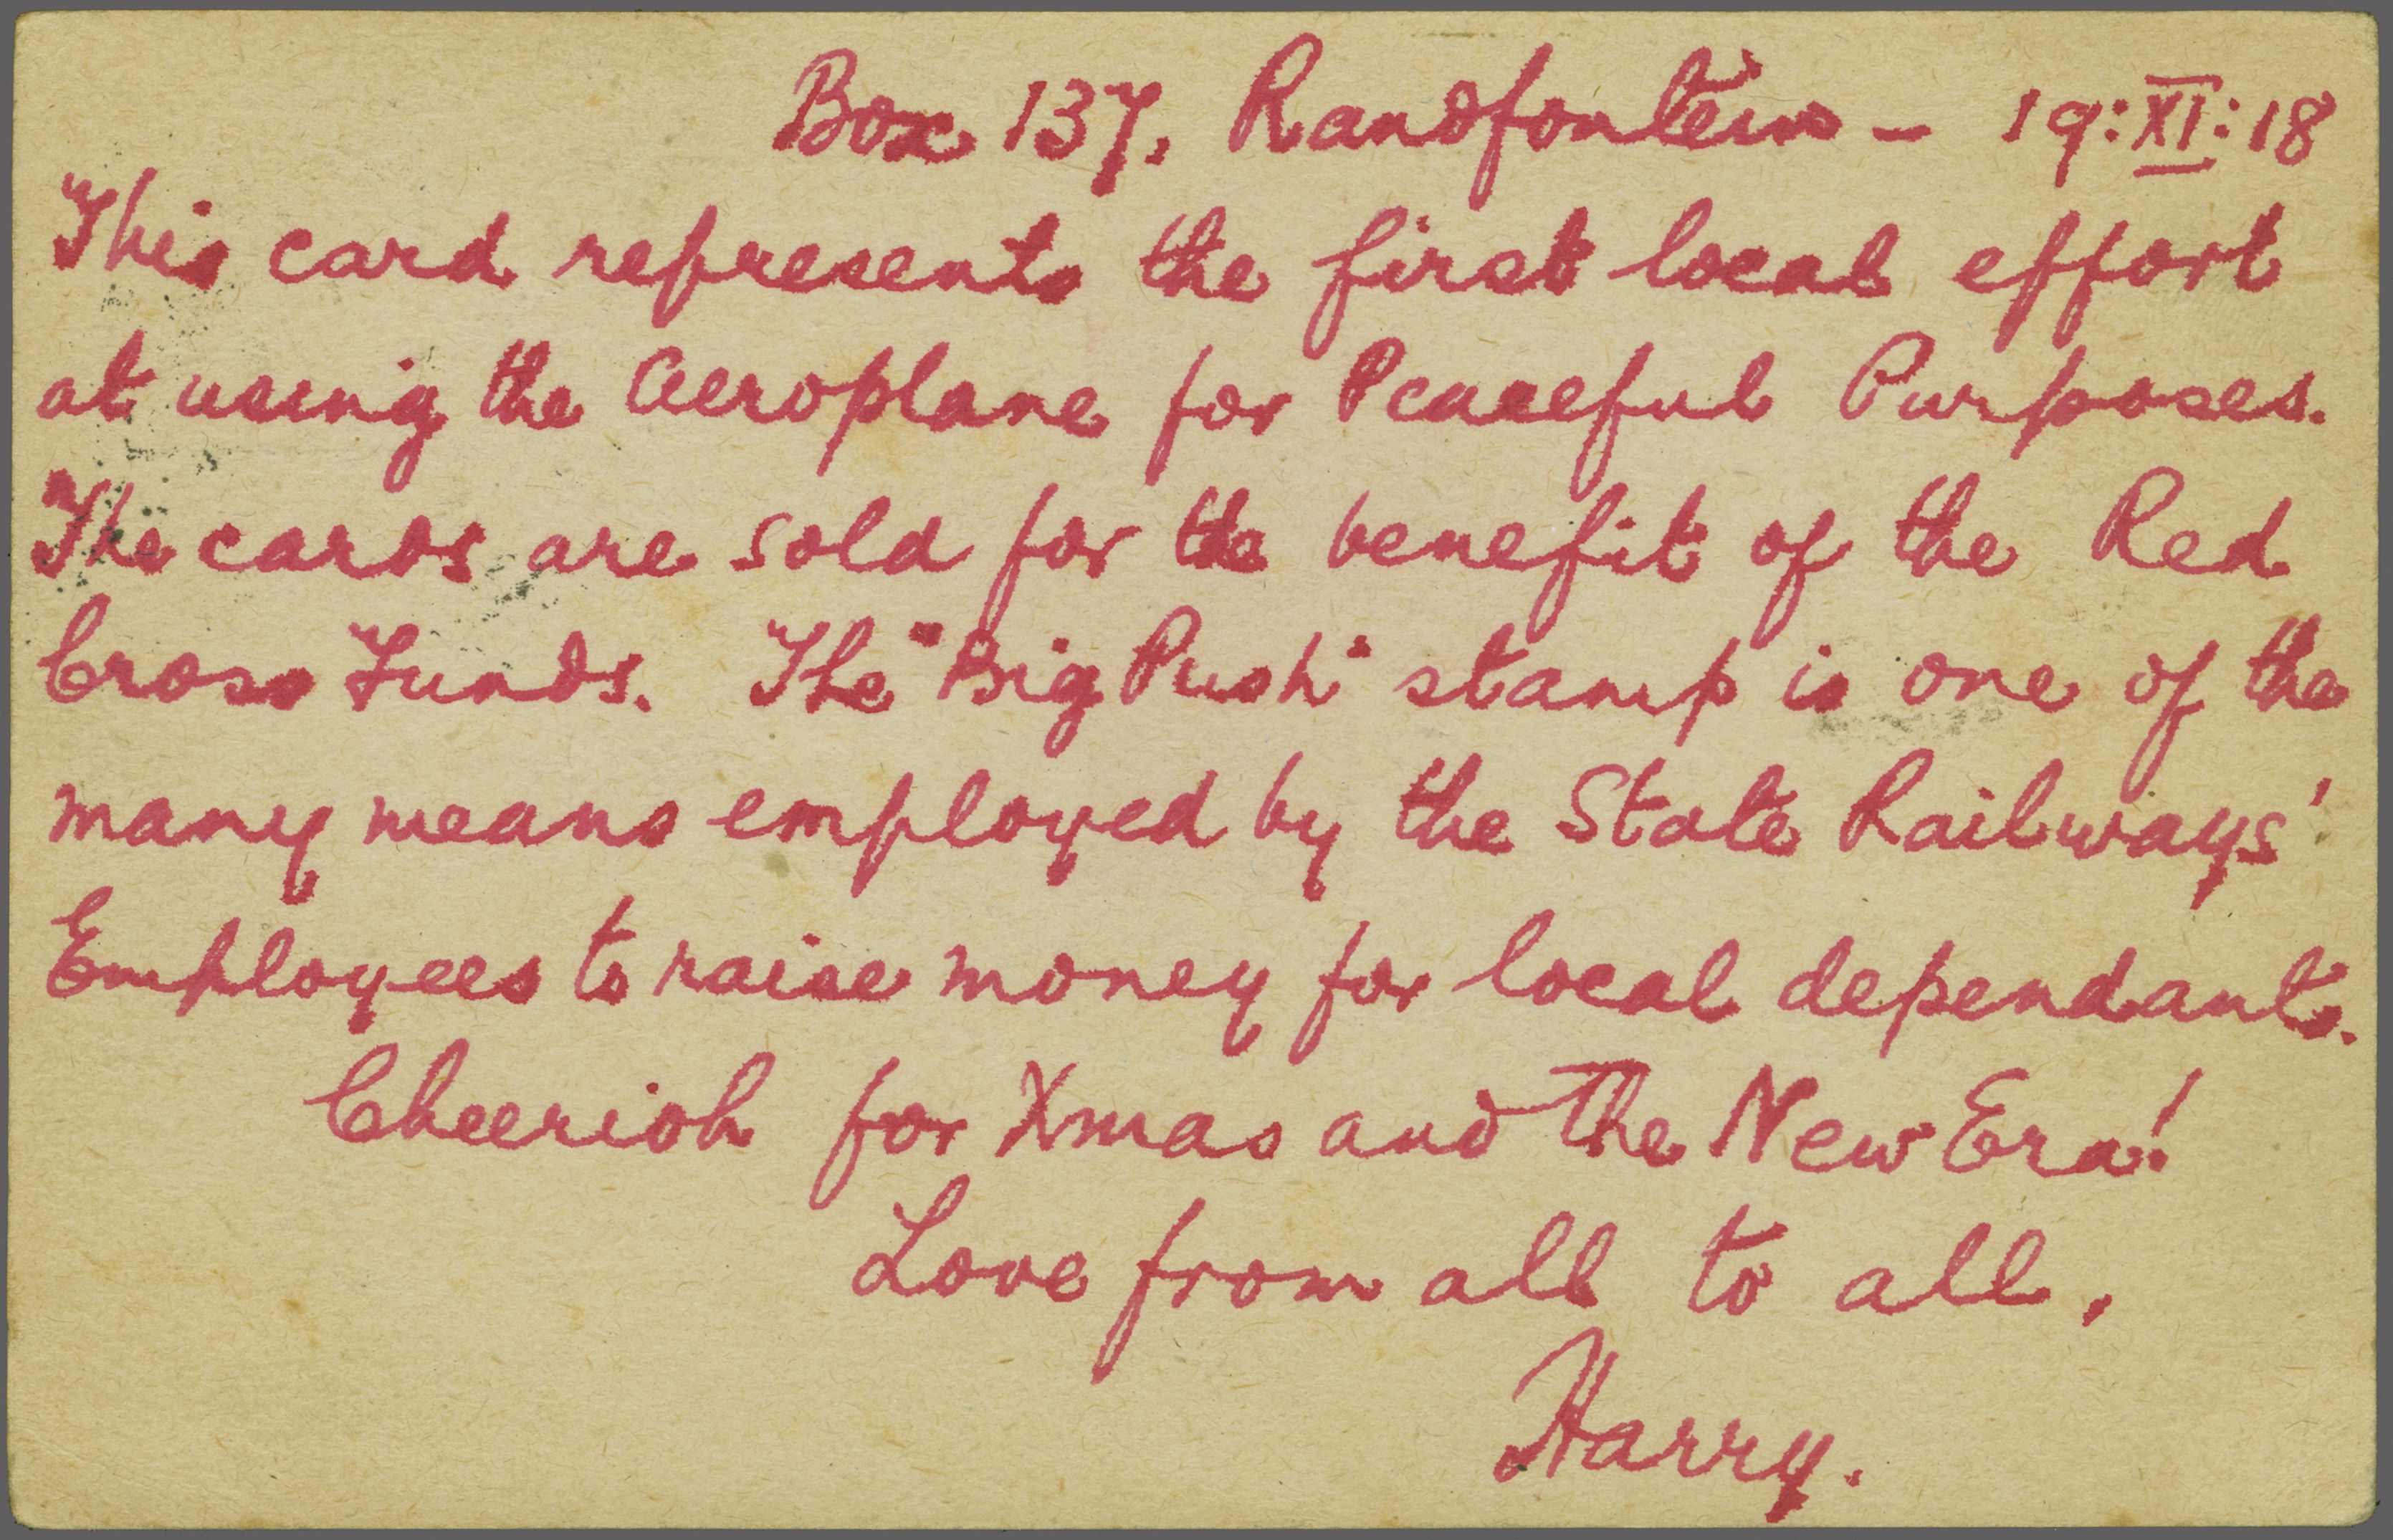 Box 137. Randfontein - 19:XI:18
This card represents the first local effort
at using the Aeroplane for Peaceful Purposes.
The cards are sold for the benefit of the Red
Cross Funds. The "Big Push" stamp is one of the
many means employed by the State Railways'
Employees to raise money for local dependants.
Cheerioh for Xmas and The New Era!
Love from all to all,
Harry.